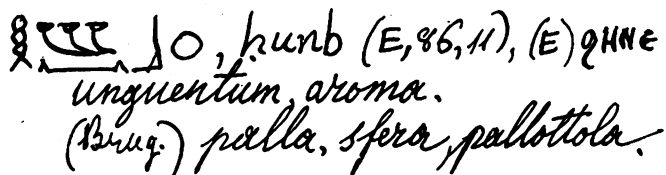 𓎛𓇅𓃀𓈒, hunb (E, 86, 11), (E) ϩⲎⲚⲈ
unguentum, aroma.
(Brug.) palla, sfera, pallottola.